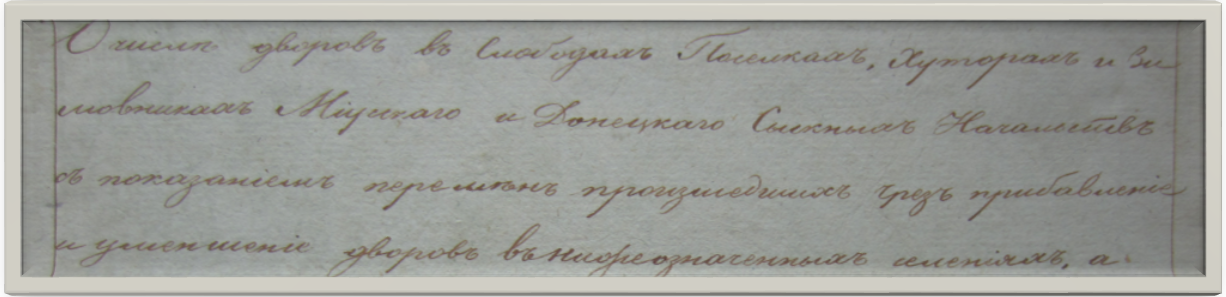 О числѣ дворовъ въ Слободахъ Поселкахъ, Хуторахъ и Зи
мовникахъ Міускаго и Донецкаго Сыскныхъ Начальствъ
съ показаніемъ перемѣнъ произшедшихъ чрезъ прибавленіе
и уменшеніе дворовъ въ нижеозначенныхъ селеніяхъ, а